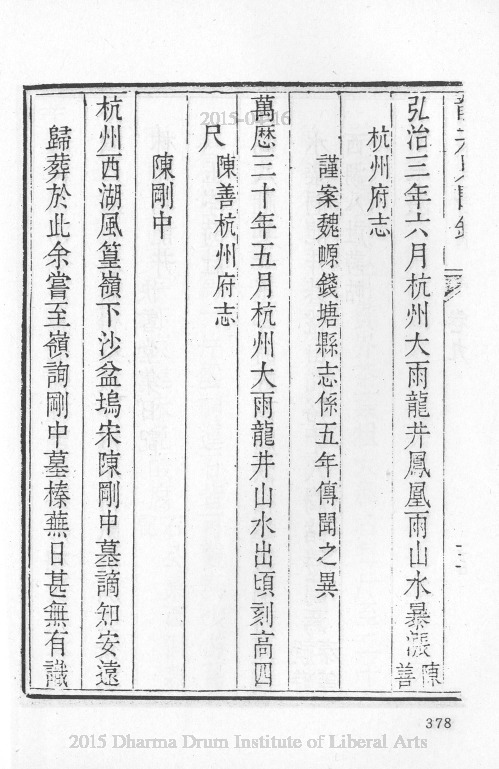 弘治三年六月杭州大雨龍井鳳凰雨山水暴漲陳善
杭州府志
謹案魏㟲錢塘縣志係五年傳聞之異
萬歷三十年五月杭州大雨龍井山水出頃刻高四
尺 陳善杭州府志
陳剛中
杭州西湖風篁嶺下沙盆塢宋陳剛中墓謫知安遠
歸葬於此余嘗至嶺詢剛中墓榛蕪日甚無有識
378
2015 Dharma Drum Institute of Liberal Arts